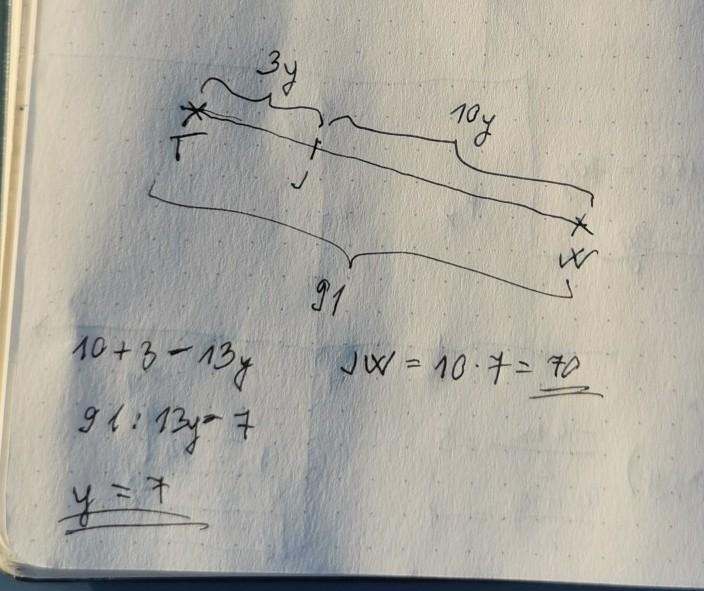 3y
10y
T
J
W
91
10 + 3 - 13y
JW = 10 · 7 = 70
91 : 13y = 7
y = 7